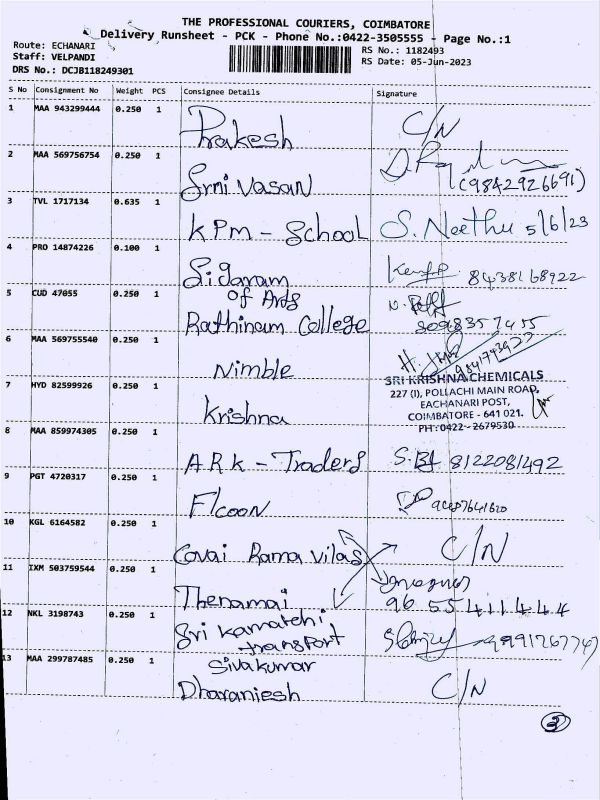 THE PROFESSIONAL COURIERS, COIMBATORE
Delivery Runsheet - PCK - Phone No.:0422-3505555 - Page No.:1
Route: ECHANARI
RS No.: 1182493
Staff: VELPANDI
RS Date: 05-Jun-2023
DRS No.: DCJB118249301
S No Consignment No Weight PCS Consignee Details Signature
1 MAA 943299444 0.250 1 Prakesh C/N
2 MAA 569756754 0.250 1 Srni vasan (9842926691)
3 TVL 1717134 0.635 1 KPM - School S. Neethu 5/6/23
4 PRO 14874226 0.100 1 Sidaram 8438168922
of Arts
5 CUD 47055 0.250 1 Rathinam College 8098357455
6 MAA 569755540 0.250 1 Nimble
7 HYD 82599926 0.250 1 Krishna
SRI KRISHNA CHEMICALS
227 (I), POLLACHI MAIN ROAD,
EACHANARI POST,
COIMBATORE - 641 021.
PH : 0422 - 2679530
8 MAA 859974305 0.250 1 ARK - Traders 8122081492
9 PGT 4720317 0.250 1 Flcoon
10 KGL 6164582 0.250 1 Covai Rama vilas C/N
11 IXM 503759544 0.250 1 Thenamai 96 55 411 444
12 NKL 3198743 0.250 1 Sri kamatchi
transport
Sivakumar
13 MAA 299787485 0.250 1 Dharaniesh C/N
3